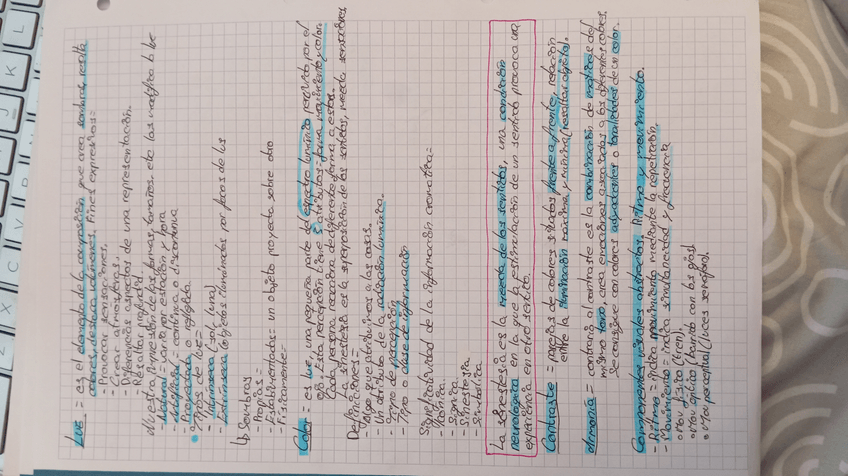 Luz = es el elemento de la composición que crea sombras, resalta
colores, destaca volúmenes. Fines expresivos =
- Provocar sensaciones.
- Crear atmósferas.
- Diferenciar aspectos de una representación.
- Resaltar
Nuestra impresión de las formas, tamaños, etc las modifica la luz
- Natural = varía por estación y hora
- Artificial = continua o discontinua
- Proyectada o reflejada.
Tipos de luz =
- Intrínseca (sol, luna)
- Extrínseca (objetos iluminados por focos de luz
↳ Sombras
- Propias =
- Esbatimentadas = un objeto proyecta sobre otro
- Físicamente =
Color = es luz, una pequeña parte del espectro lumínico percibido por el
ojo. Esta percepción tiene 3 atributos = forma, movimiento y color.
Cada persona reacciona de diferente forma a estos.
La sinestesia es la superposición de los sentidos, mezcla sensaciones
Definiciones =
- Algo que atribuimos a las cosas.
- Un atributo de la radiación lumínica.
- Órgano de percepción
- Tipo o clase de información
Significatividad de la información cromática =
- Icónica.
- Sígnica.
- Sinestésica
- Sintáctica
La sinestesia es la mezcla de los sentidos, una condición
neurológica en la que la estimulación de un sentido provoca una
experiencia en otro sentido.
Contraste = parejas de colores situados frente a frente, relación
entre la iluminación máxima y mínima (resaltar objetos).
Armonía = contrario al contraste es la combinación de matices del
mismo tono crea emociones asociadas a los diferentes colores.
Se consigue con colores adyacentes o tonalidades de un color.
Componentes visuales abstractos. Ritmo y movimiento.
- Ritmo = indica movimiento mediante la repetición.
- Movimiento = indica simultaneidad y frecuencia.
o Mov físico (tren).
o Mov óptico (barrido con los ojos)
o Mov perceptual (luces semáforo).